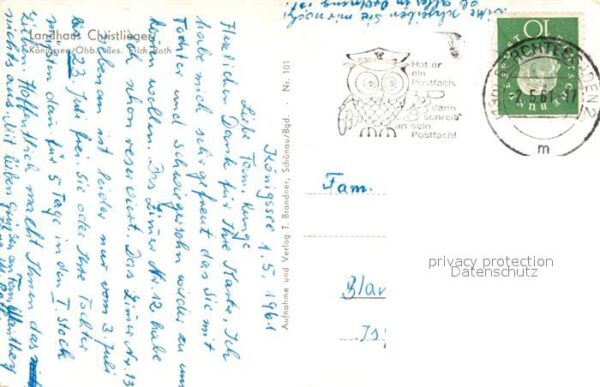 Landhaus Christlieger
Königssee/Obb., Bes. Erich Roth
Königssee 1.5.1961
Liebe Fam. Kunge
Herzlichen Dank für Ihre Karte, Ich
habe mich sehr gefreut das Sie mit
Tochter und Schwiegersohn wieder zu uns
kommen wollen. Das Zimer Nr. 12 habe
ich schon reserviert. Das Zimer Nr. 13
ist leider nur vom 3. Juli
bis 23. Juli frei. Sie oder Ihre Tochter
müssten dan für 5 Tage in den I. Stock
ziehen. Hoffentlich macht Ihnen das
nichts aus. Mit lieben Grüssen an Fam.
bitte schreiben Sie mir noch
ob alles in Ordnung ist.
Aufnahme und Verlag T. Brandner, Schönau/Bgd. · Nr. 101
Hat er
ein
Postfach,
dann
schreib
an sein
Postfach!
BERCHTESGADEN 2
61
m
10
DEUTSCHE BUNDESPOST
Fam.
Blan
privacy protection
Datenschutz